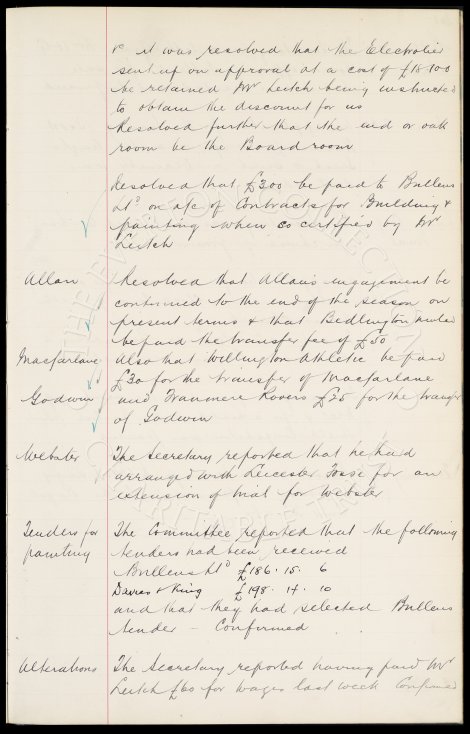 & it was resolved that the Electrolier
sent up on approval at a cost of £18.10.0
be retained Mr Leitch being instructed
to obtain the discount for us
Resolved further that the end or oak
room be the Boardroom
Resolved that £300 be paid to Bullens
Ltd on a/c of Contracts for Building &
painting when so certified by Mr
Leitch
Allan Resolved that Allan's engagement be
confirmed to the end of the season on
present terms & that Bedlington United
be paid the transfer fee of £50
Macfarlane Also that Willington Athletic be paid
£30 for the transfer of Macfarlane
Godwin and Tranmere Rovers £25 for the transfer
of Godwin
Webster The Secretary reported that he had
arranged with Leicester Fosse for an
extension of trial for Webster
Tenders for The Committee reported that the following
painting tenders had been received
Bullens Ltd £186. 15. 6
Davies & King £198. 14. 10
and that they had selected Bullens
tender - Confirmed
Alterations The Secretary reported having paid Mr
Leitch £60 for wages last week Confirmed